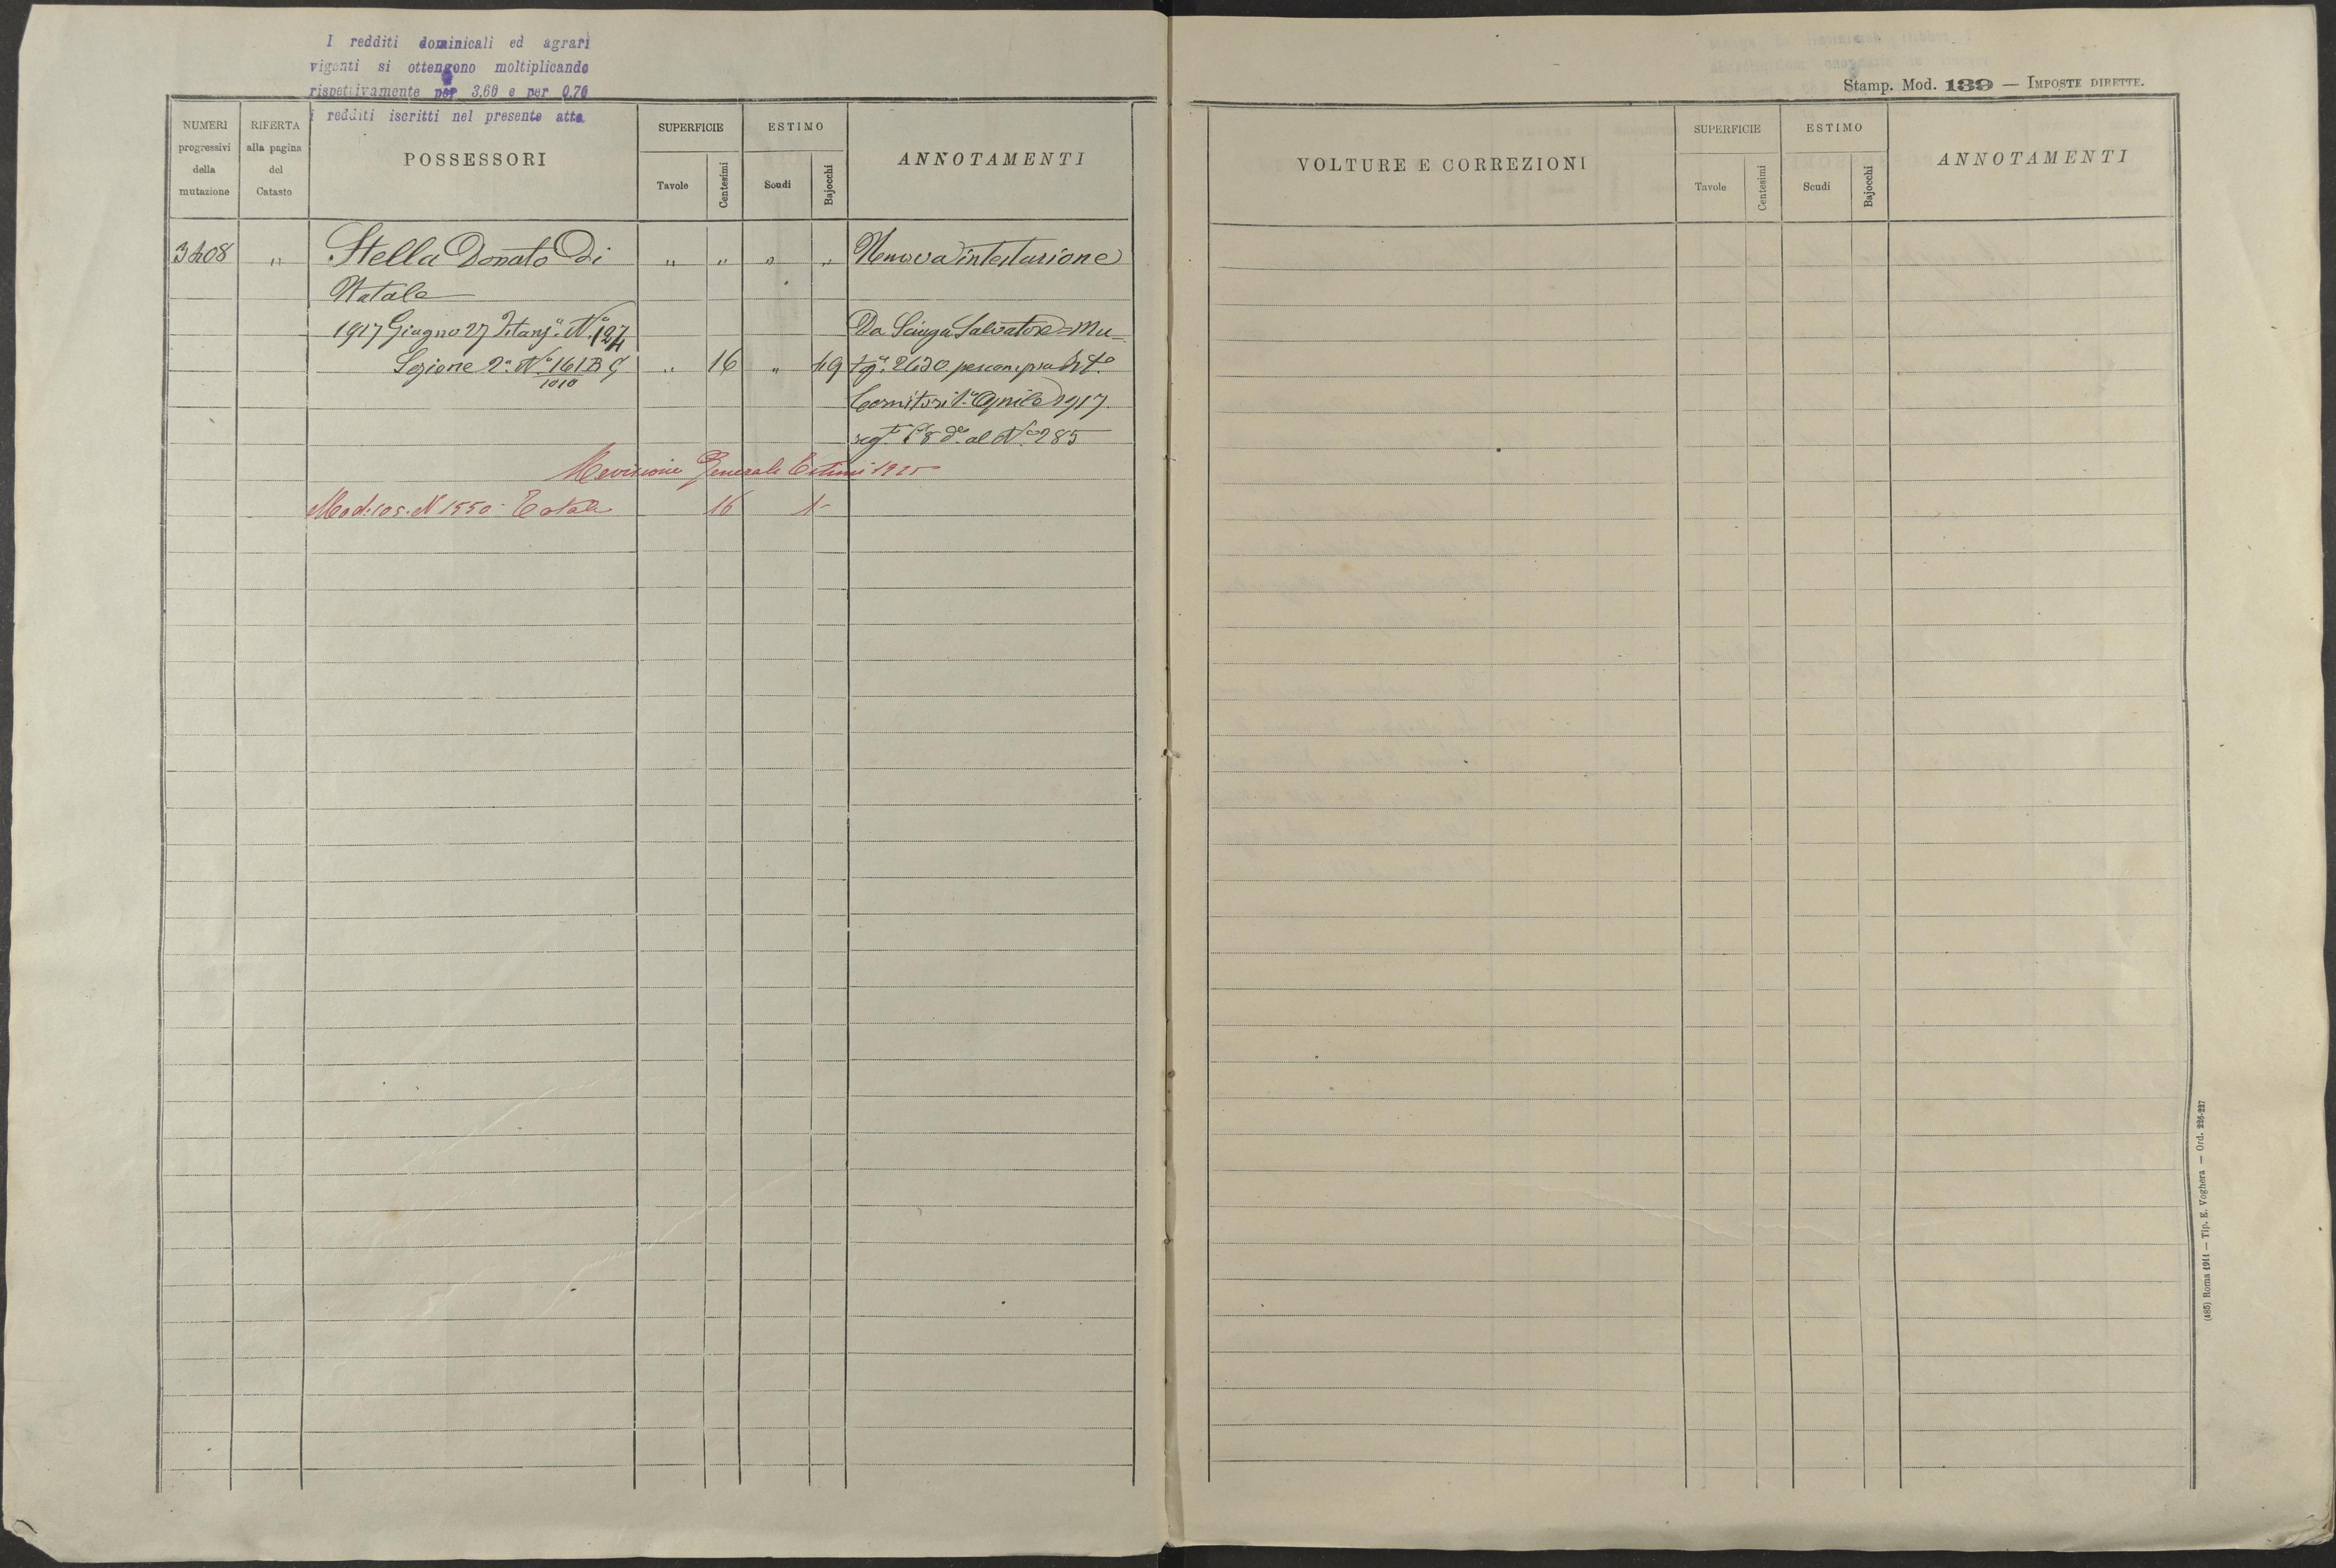 I redditi dominicali ed agrari
vigenti si ottengono moltiplicando
rispettivamente per 3,60 e per 0,70
i redditi iscritti nel presente atto
NUMERI progressivi della mutazione
RIFERTA alla pagina del Catasto
POSSESSORI
SUPERFICIE
Tavole
Centesimi
ESTIMO
Scudi
Bajocchi
ANNOTAMENTI
3408 " Stella Donato Di " " " " Nuova intestazione
Natale
1917 Giugno 27 N.° 124 Da Salvatore = Mu-
Sezione 2a N.° 161 B " 16 " 49 2620 per compra
1010
1° Aprile 1917
al N.° 285
Revisione Generale Estimi 1925
Mod. 105. N 1550 - Totale 16 1-
Stamp. Mod. 139 — IMPOSTE DIRETTE.
VOLTURE E CORREZIONI
SUPERFICIE
Tavole
Centesimi
ESTIMO
Scudi
Bajocchi
ANNOTAMENTI
(485) Roma 1911 — Tip. E. Voghera — Ord. 226-227